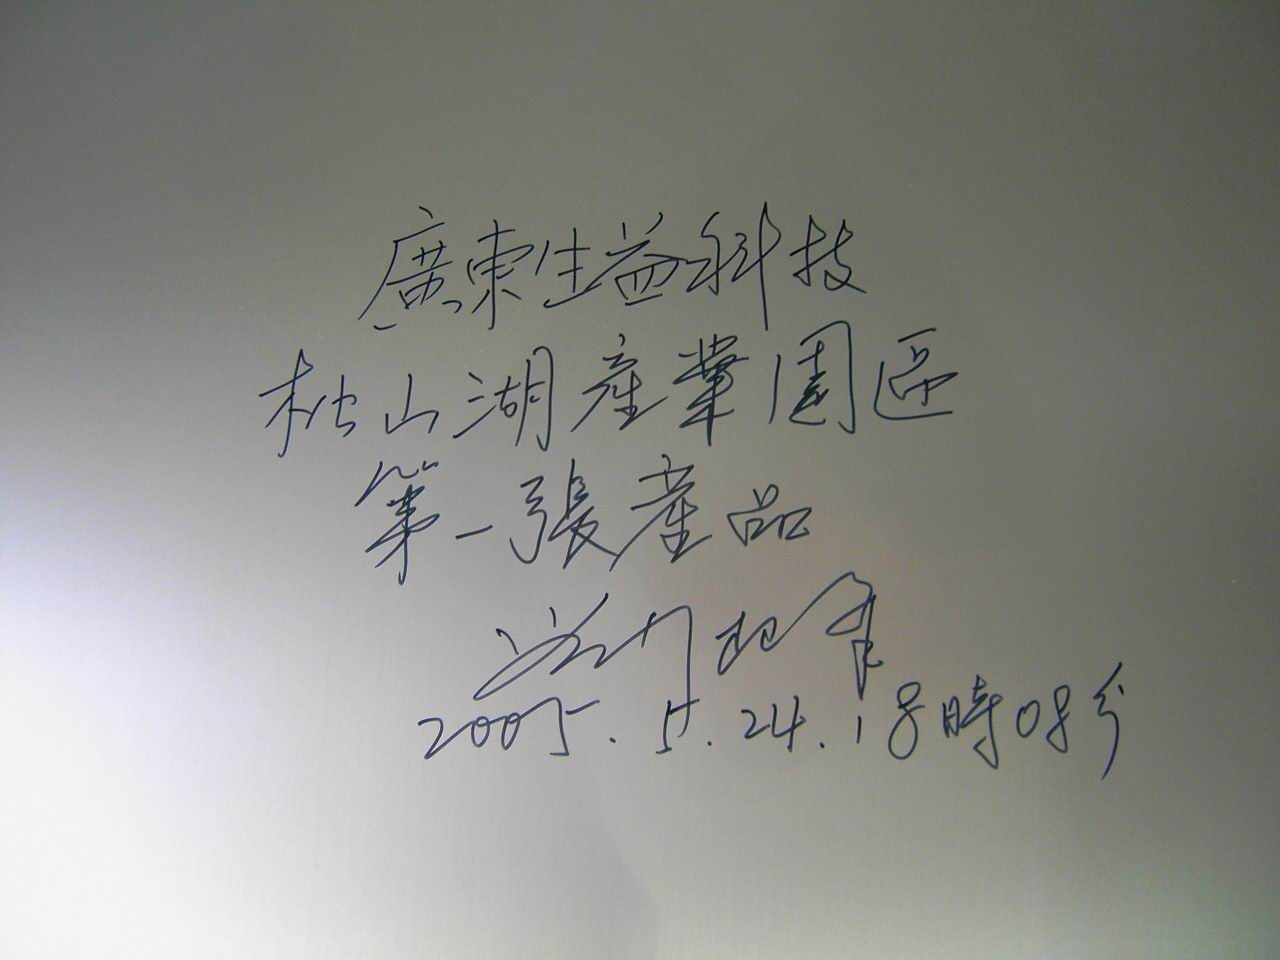 廣東生益科技
松山湖產業園區
第一張產品
2005.5.24.18時08分